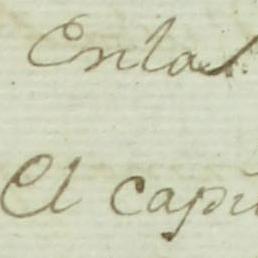 Enla
El capi